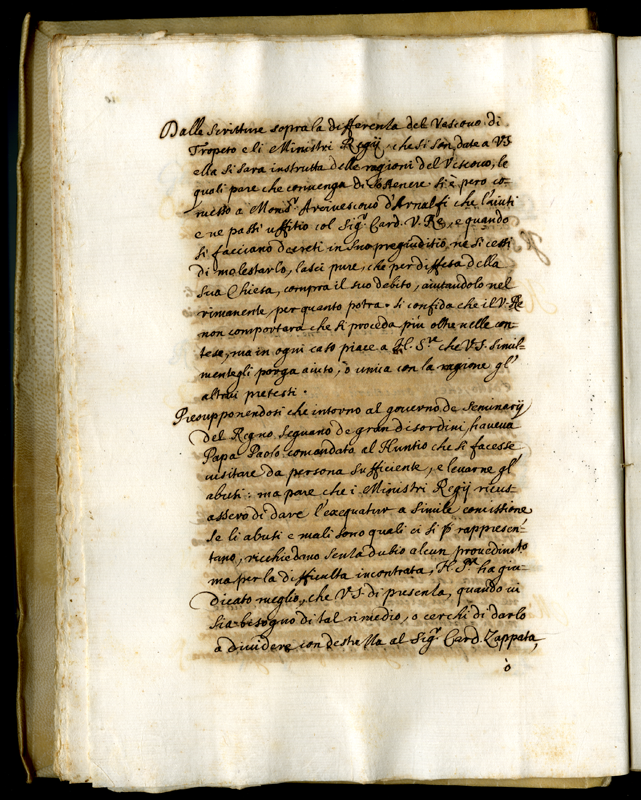 Dalle scritture sopra la differenza del Vescovo di
Tropeto e li Ministri Regij, che si son date a V.S.
ella si sara instrutta delle ragioni del Vescovo, le
quali pare che convenga di sostenere si è pero co-
messo a Mons.r Arcivescovo d'Amalfi che l'aiuti
e ne passi uffitio col Sig.r Card. V. Re, e quando
si facciano decreti in suo pregiuditio, ne si cessi
di molestarlo, lasci pure, che per diffesa della
sua Chiesa, compra il suo debito, aiutandolo nel
rimanente, per quanto potra. si confida che il V. Re
non comportara che si proceda più oltre nelle con-
tese, ma in ogni caso piace a N. S.re che V.S. simil-
mente gli porga aiuto, ò unica con la ragione gl'
altrui pretesti.
Presupponendosi che intorno al governo de Seminarij
del Regno seguano de gran disordini haveva
Papa Paolo comandato al Nuntio che si facesse
visitare da persona sufficiente, e levarne gl'
abusi: ma pare che i Ministri Regij ricus-
assero di dare l'exequatur a simile comissione
se li abusi e mali sono quali ci si rappresen-
tano, richiedano senza dubio alcun provedim.to
ma per la difficulta incontrata, N. S.re ha giu-
dicato meglio, che V.S. di presenza, quando vi
sia besogno di tal rimedio, o cerchi di darlo
a dividere con destrezza al Sig.r Card. Zappata,
ò